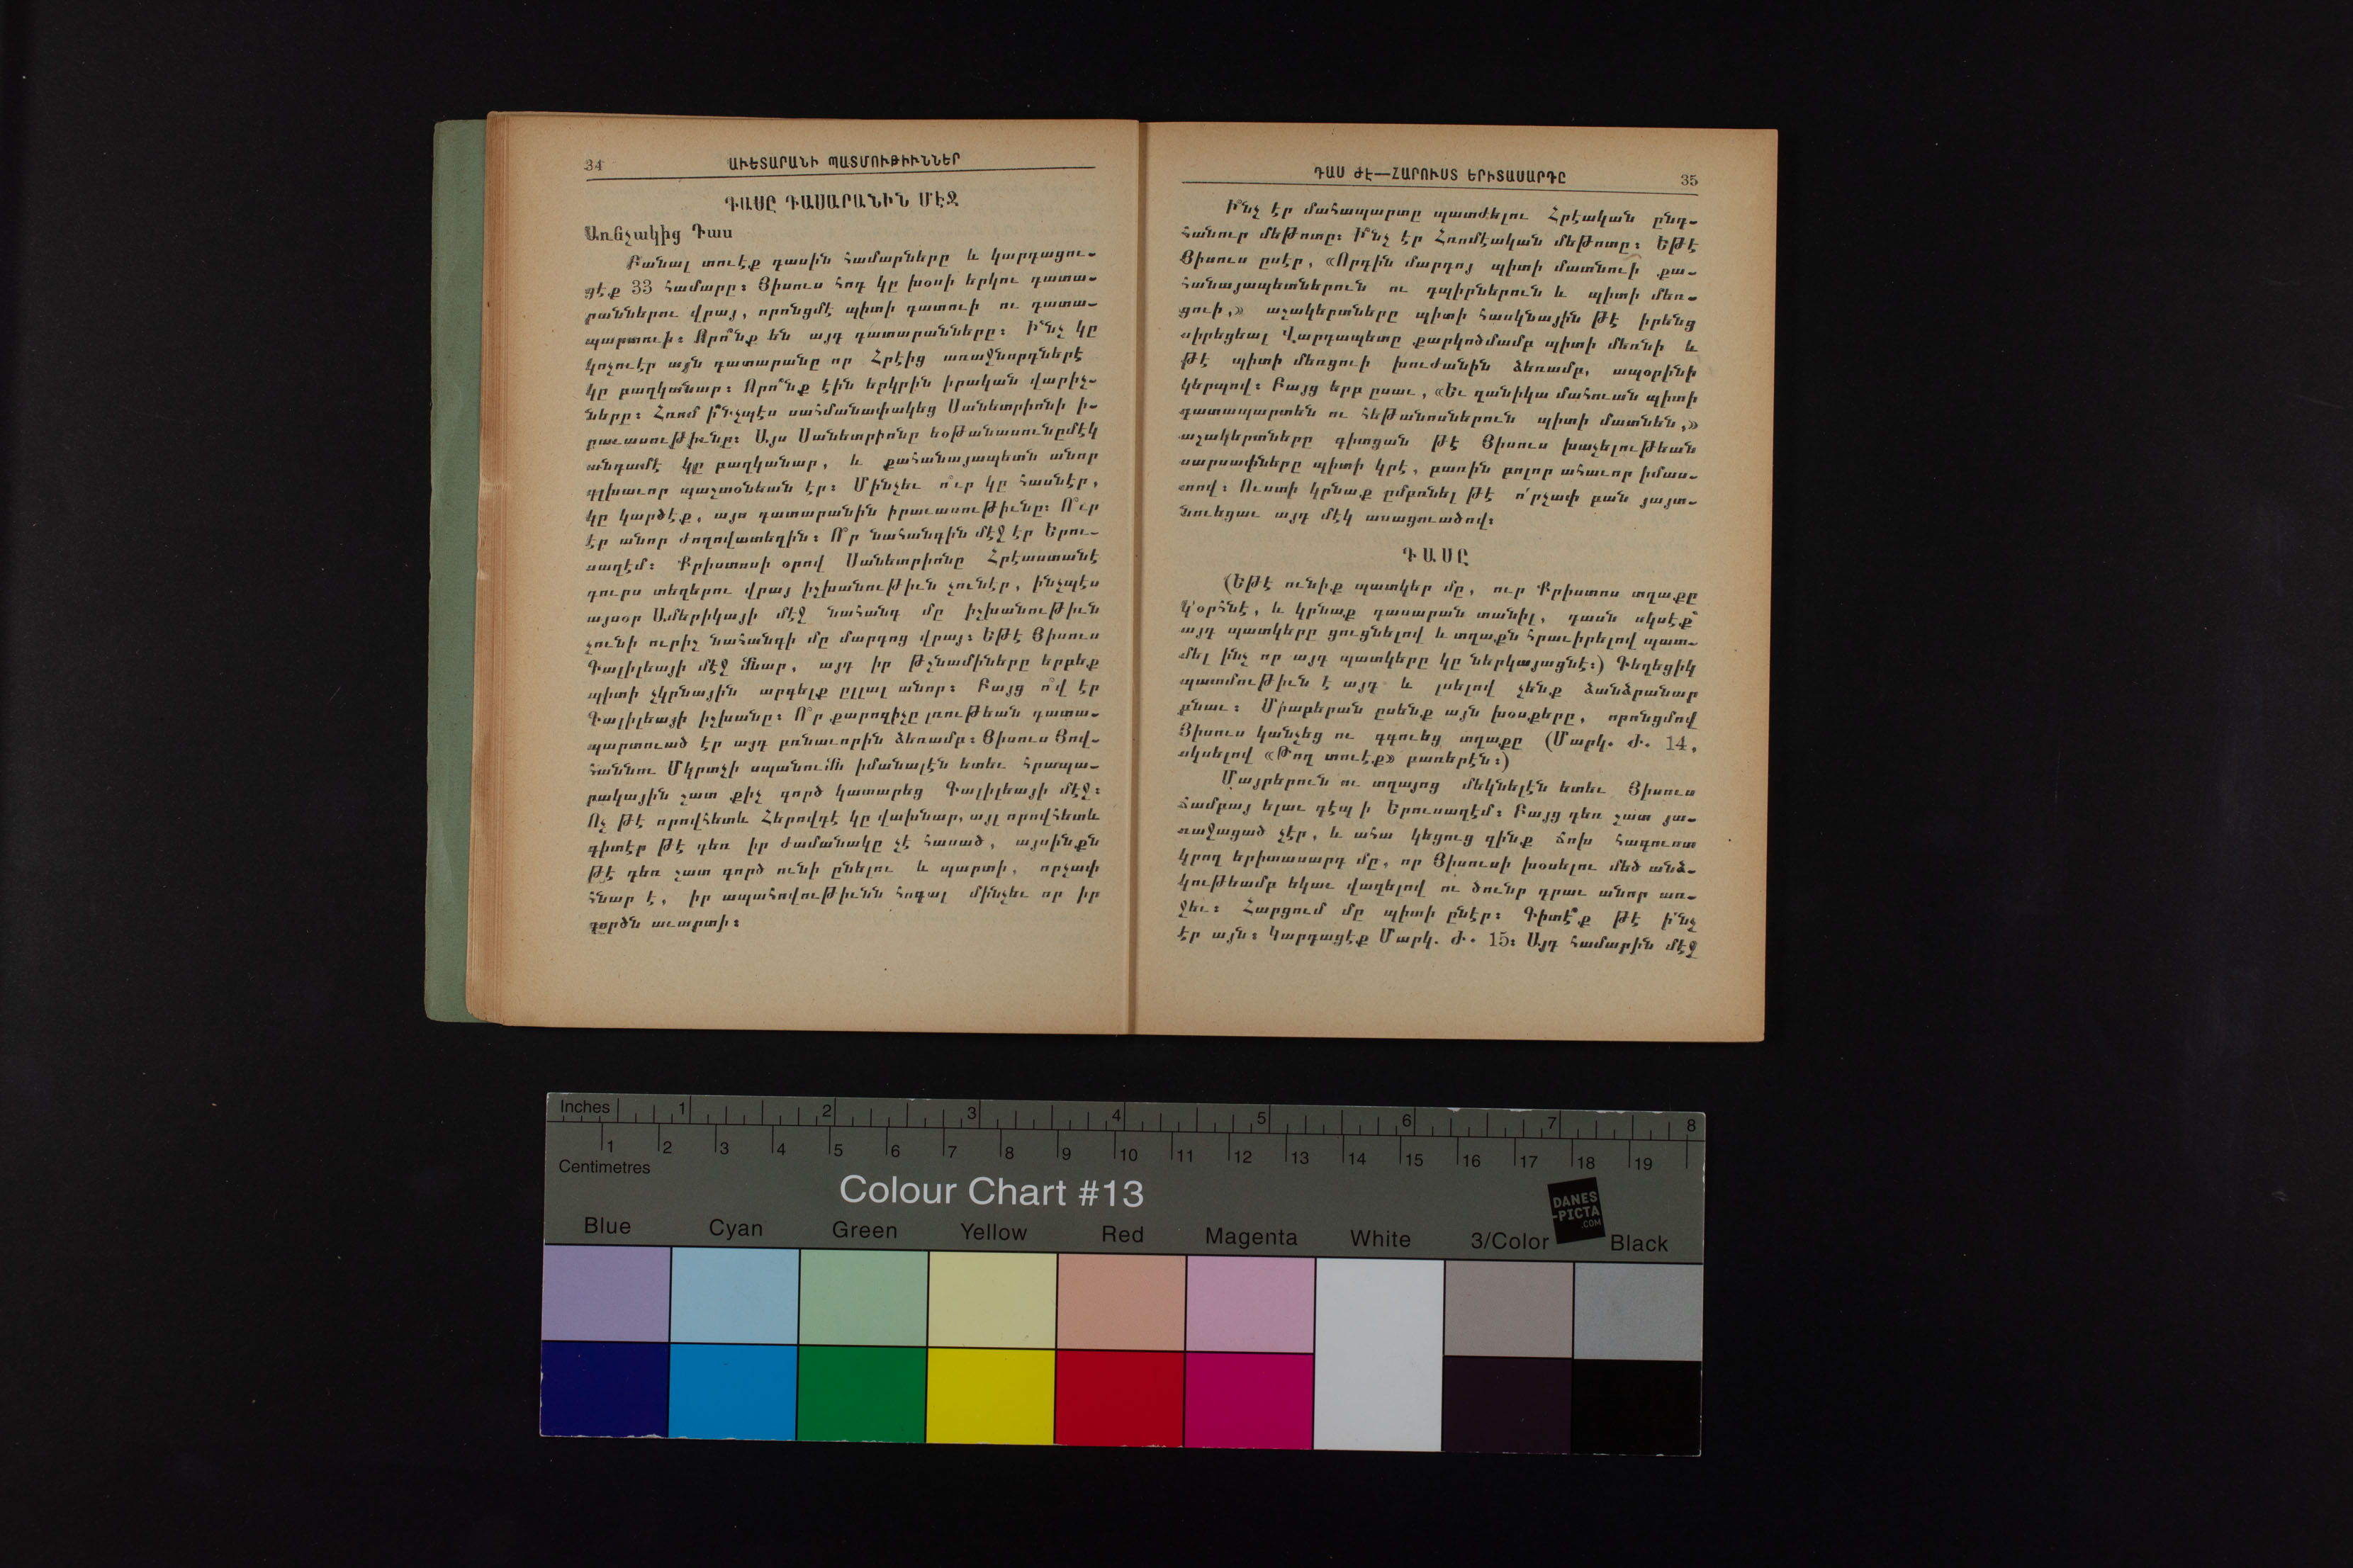 34
ԱՒԵՏԱՐԱՆԻ ՊԱՏՄՈՒԹԻՒՆՆԵՐ
ԴԱՍԸ ԴԱՍԱՐԱՆԻՆ ՄԷՋ
Առնչակից Դաս
Բանալ տուէք դասին համարները և կարդացու-
ցէք 33 համարը։ Յիսուս հոդ կը խօսի երկու դատա-
րաններու վրայ, որոնցմէ պիտի դատուի ու դատա-
պարտուի։ Որո՞նք են այդ դատարանները։ Ի՞նչ կը
կոչուէր այն դատարանը որ Հրէից առաջնորդներէ
կը բաղկանար։ Որո՞նք էին երկրին իրական վարիչ-
ները։ Հռոմ ի՞նչպէս սահմանափակեց Սանետրիոնի ի-
րաւասութիւնը։ Այս Սանետրիոնը եօթանասունըմէկ
անդամէ կը բաղկանար, և քահանայապետն անոր
գլխաւոր պաշտօնեան էր։ Մինչեւ ո՞ւր կը հասնէր,
կը կարծէք, այս դատարանին իրաւասութիւնը։ Ո՞ւր
էր անոր ժողովատեղին։ Ո՞ր նահանգին մէջ էր Երու-
սաղէմ։ Քրիստոսի օրով Սանետրիոնը Հրէաստանէ
դուրս տեղերու վրայ իշխանութիւն չունէր, ինչպէս
այսօր Ամերիկայի մէջ նահանգ մը իշխանութիւն
չունի ուրիշ նահանգի մը մարդոց վրայ։ Եթէ Յիսուս
Գալիլեայի մէջ մնար, այդ իր թշնամիները երբեք
պիտի չկրնային արգելք ըլլալ անոր։ Բայց ո՞վ էր
Գալիլեայի իշխանը։ Ո՞ր քարոզիչը լռութեան դատա-
պարտուած էր այդ բռնաւորին ձեռամբ։ Յիսուս Յով-
հաննու Մկրտչի սպանումն իմանալէն ետեւ հրապա-
րակային շատ քիչ գործ կատարեց Գալիլեայի մէջ։
Ոչ թէ որովհետև Հերովդէ կը վախնար, այլ որովհետև
գիտէր թէ դեռ իր ժամանակը չէ հասած, այսինքն
թէ դեռ շատ գործ ունի ընելու և պարտի, որչափ
հնար է, իր ապահովութիւնն հոգալ մինչեւ որ իր
գործն աւարտի։
ԴԱՍ ԺԷ—ՀԱՐՈՒՍՏ ԵՐԻՏԱՍԱՐԴԸ
35
Ի՞նչ էր մահապարտը պատժելու Հրէական ընդ-
հանուր մեթոտը։ Ի՞նչ էր Հռոմէական մեթոտը։ Եթէ
Յիսուս ըսէր, «Որդին մարդոյ պիտի մատնուի քա-
հանայապետներուն ու դպիրներուն և պիտի մեռ-
ցուի,» աշակերտները պիտի հասկնային թէ իրենց
սիրեցեալ Վարդապետը քարկոծմամբ պիտի մեռնի և
թէ պիտի մեռցուի խուժանին ձեռամբ, ապօրինի
կերպով։ Բայց երբ ըսաւ, «Եւ զանիկա մահուան պիտի
դատապարտեն ու հեթանոսներուն պիտի մատնեն,»
աշակերտները գիտցան թէ Յիսուս խաչելութեան
սարսափները պիտի կրէ, բառին բոլոր ահաւոր իմաս-
տով։ Ուստի կրնաք ըմբռնել թէ ո՛րչափ բան յայտ-
նուեցաւ այդ մէկ ասացուածով։
ԴԱՍԸ
(Եթէ ունիք պատկեր մը, ուր Քրիստոս տղաքը
կ'օրհնէ, և կրնաք դասարան տանիլ, դասն սկսէք
այդ պատկերը ցուցնելով և տղաքն հրաւիրելով պատ-
մել ինչ որ այդ պատկերը կը ներկայացնէ։) Գեղեցիկ
պատմութիւն է այդ և լսելով չենք ձանձրանար
բնաւ։ Միաբերան ըսենք այն խօսքերը, որոնցմով
Յիսուս կանչեց ու գգուեց տղաքը (Մարկ. Ժ. 14,
սկսելով «Թող տուէք» բառերէն։)
Մայրերուն ու տղայոց մեկնելէն ետեւ Յիսուս
ճամբայ ելաւ դէպ ի Երուսաղէմ։ Բայց դեռ շատ յա-
ռաջացած չէր, և ահա կեցուց զինք ճոխ հագուստ
կրող երիտասարդ մը, որ Յիսուսի խօսելու մեծ անձ-
կութեամբ եկաւ վազելով ու ծունր դրաւ անոր առ-
ջեւ։ Հարցում մը պիտի ընէր։ Գիտէ՞ք թէ ի՛նչ
էր այն։ Կարդացէք Մարկ. Ժ. 15։ Այդ համարին մէջ
Inches 1 2 3 4 5 6 7 8
1 2 3 4 5 6 7 8 9 10 11 12 13 14 15 16 17 18 19
Centimetres
Colour Chart #13
DANES
-PICTA
.COM
Blue Cyan Green Yellow Red Magenta White 3/Color Black